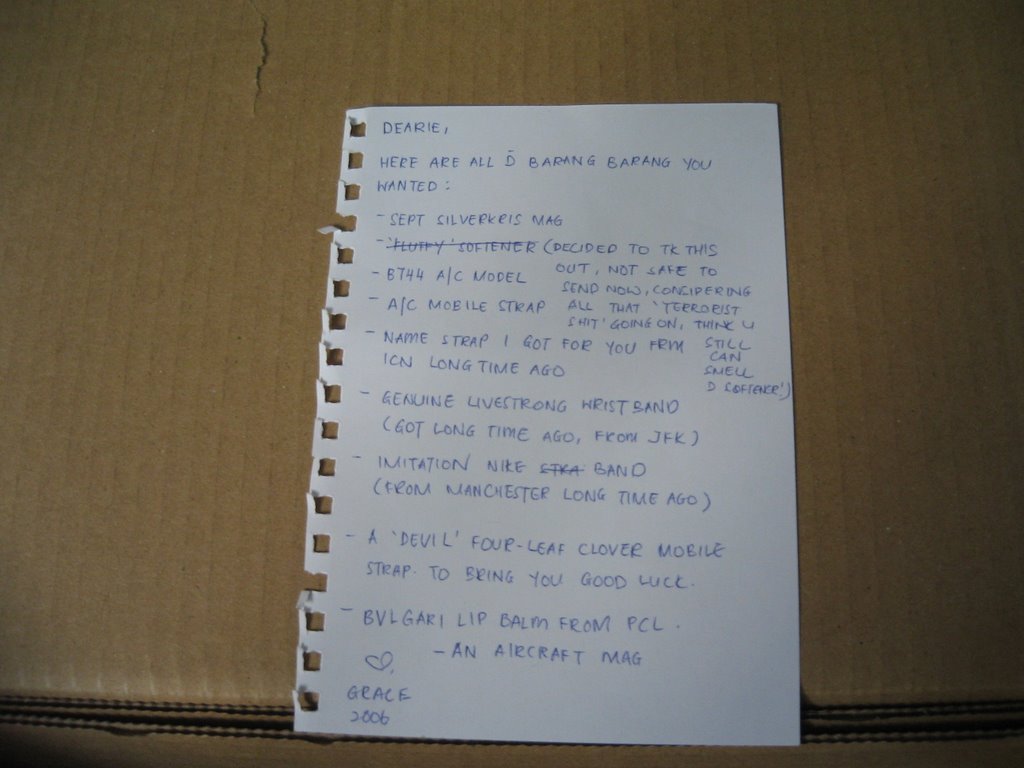 DEARIE,
HERE ARE ALL D̄ BARANG BARANG YOU
WANTED:
- SEPT SILVERKRIS MAG
- 'FLUFFY' SOFTENER (DECIDED TO TK THIS
OUT, NOT SAFE TO
- B744 A/C MODEL SEND NOW, CONSIDERING
- A/C MOBILE STRAP ALL THAT 'TERRORIST
SHIT' GOING ON, THINK U
- NAME STRAP I GOT FOR YOU FRM STILL
ICN LONG TIME AGO CAN
SMELL
D SOFTENER!)
- GENUINE LIVESTRONG WRISTBAND
(GOT LONG TIME AGO, FROM JFK)
- IMITATION NIKE STRA BAND
(FROM MANCHESTER LONG TIME AGO)
- A 'DEVIL' FOUR-LEAF CLOVER MOBILE
STRAP. TO BRING YOU GOOD LUCK.
- BVLGARI LIP BALM FROM PCL.
- AN AIRCRAFT MAG
♡,
GRACE
2006